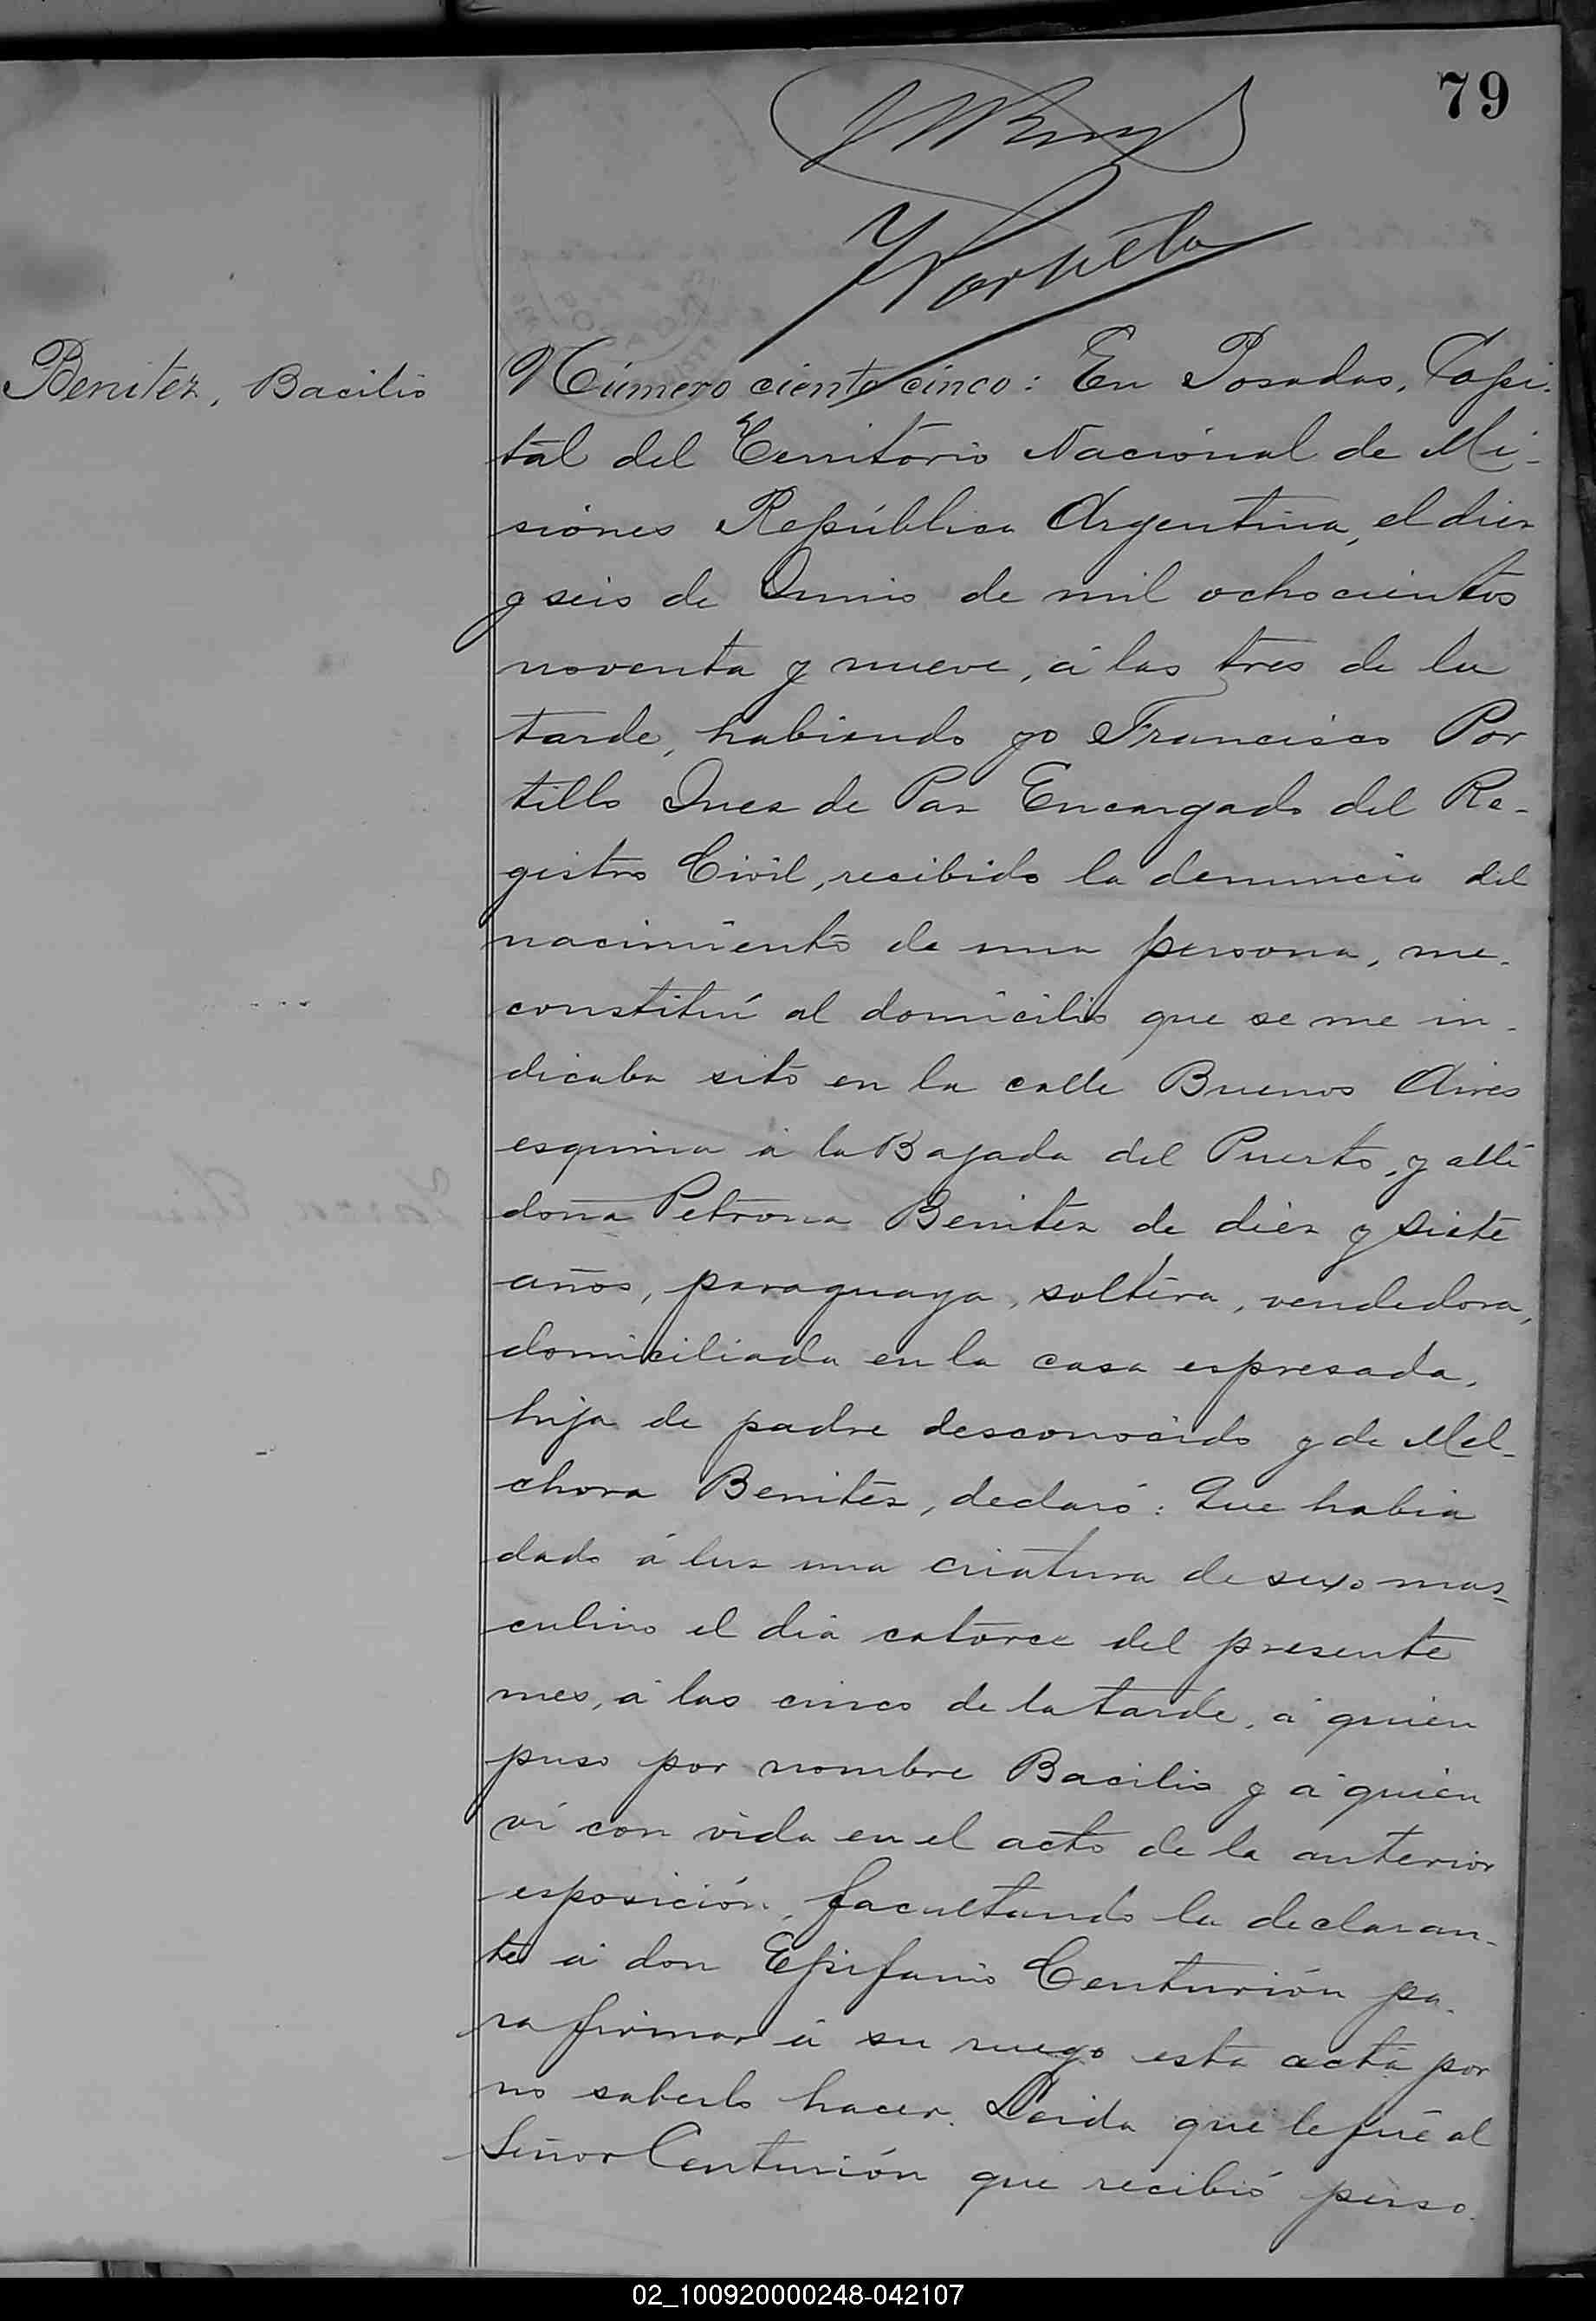 79
Benitez, Bacilio
Número ciento cinco: En Posadas, Capi-
tal del Territorio Nacional de Mi-
siones República Argentina, el diez
y seis de Junio de mil ochocientos
noventa y nueve, á las tres de la
tarde, habiendo yo Francisco Por
tillo Juez de Paz Encargado del Re-
gistro Civil, recibido la denuncia del
nacimiento de una persona, me
constituí al domicilio que se me in-
dicaba sito en la calle Buenos Aires
esquina á la Bajada del Puerto, y allí
doña Petrona Benitez de diez y siete
años, paraguaya, soltera, vendedora,
domiciliada en la casa espresada,
hija de padre desconocido y de Mel-
chora Benitez, declaró: Que habia
dado á luz una criatura de sexo mas-
culino el dia catorce del presente
mes, á las cinco de la tarde, á quien
puso por nombre Bacilio y á quien
ví con vida en el acto de la anterior
esposición, facultando la declaran-
te á don Epifanio Centurión pa-
ra firmar á su ruego esta acta por
no saberlo hacer. Leida que le fué al
Señor Centurión que recibió perso
02_100920000248-042107